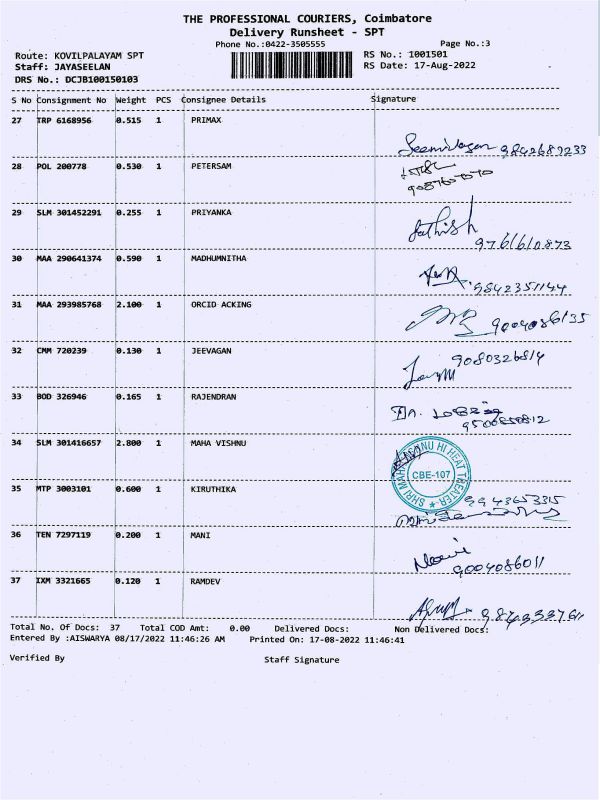 THE PROFESSIONAL COURIERS, Coimbatore
Delivery Runsheet - SPT
Phone No.:0422-3505555 Page No.:3
Route: KOVILPALAYAM SPT RS No.: 1001501
Staff: JAYASEELAN RS Date: 17-Aug-2022
DRS No.: DCJB100150103
S No Consignment No Weight PCS Consignee Details Signature
27 TRP 6168956 0.515 1 PRIMAX
9842689233
28 POL 200778 0.530 1 PETERSAM
29 SLM 301452291 0.255 1 PRIYANKA
Sathish
9761610873
30 MAA 290641374 0.590 1 MADHUMNITHA
9842351144
31 MAA 293985768 2.100 1 ORCID ACKING
9004086135
32 CMM 720239 0.130 1 JEEVAGAN
9080326814
33 BOD 326946 0.165 1 RAJENDRAN
9500850812
34 SLM 301416657 2.800 1 MAHA VISHNU
CBE-107
35 MTP 3003101 0.600 1 KIRUTHIKA
9943653315
36 TEN 7297119 0.200 1 MANI
9004086011
37 IXM 3321665 0.120 1 RAMDEV
Total No. Of Docs: 37 Total COD Amt: 0.00 Delivered Docs: Non Delivered Docs:
Entered By :AISWARYA 08/17/2022 11:46:26 AM Printed On: 17-08-2022 11:46:41
Verified By Staff Signature